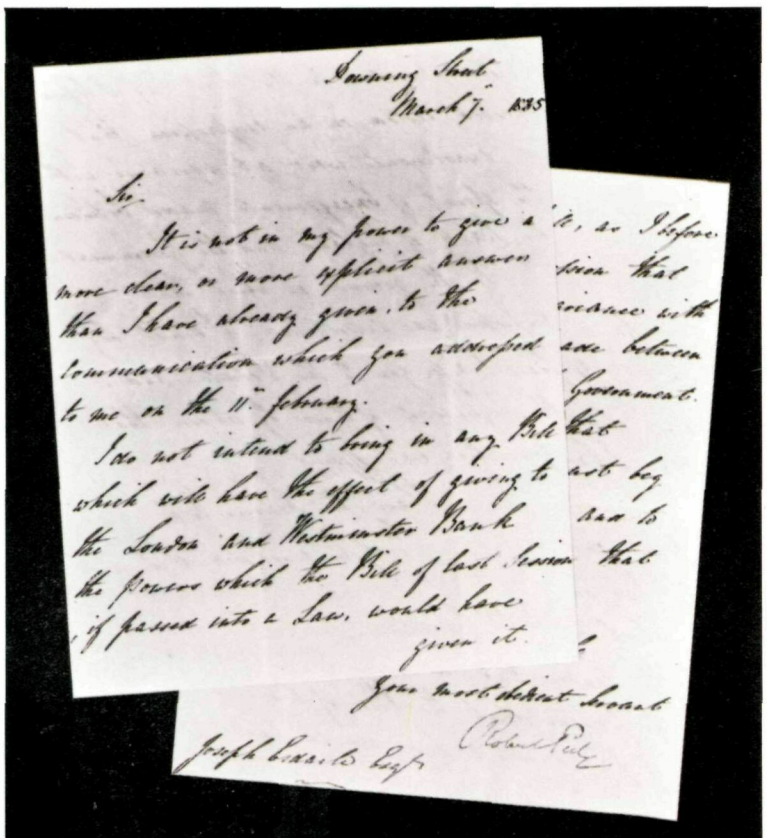 Downing Street
March 7th 1835
Sir
It is not in my power to give a
more clear, or more explicit answer
than I have already given, to the
communication which you addressed
to me on the 11th February.
I do not intend to bring in any Bill
which will have the effect of giving to
the London and Westminster Bank
the powers which the Bill of last Session
if passed into a Law, would have
given it.
as I before
that
with
between
Government.
that
not beg
and to
that
Your most obedient Servant
Robert Peel
Joseph Esdaile Esqr